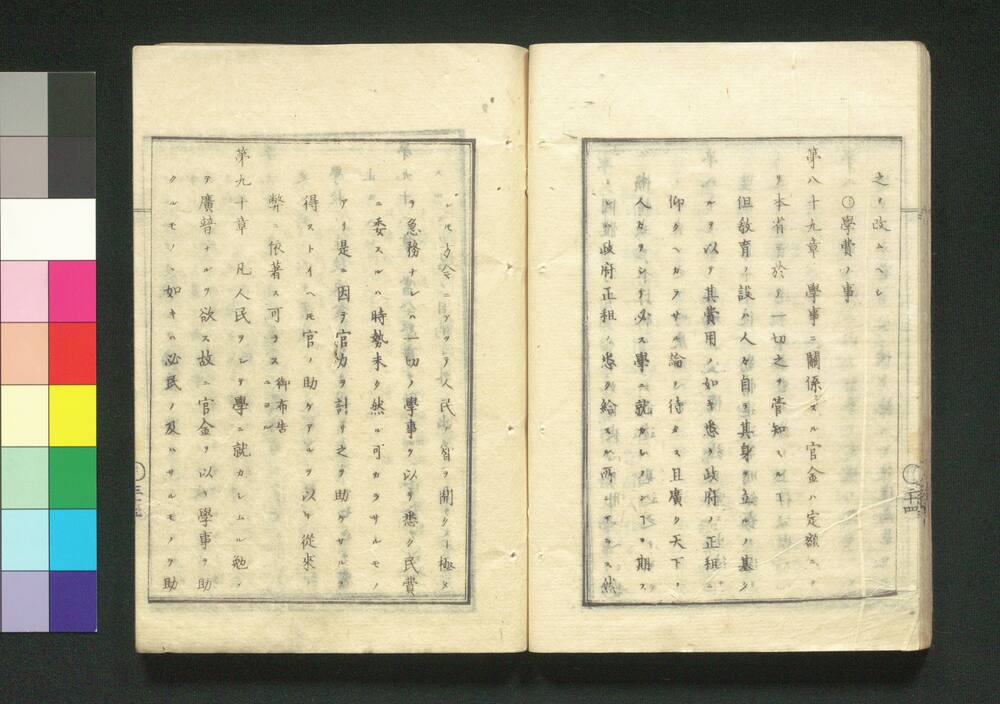 之ヲ改ムヘシ
○學費ノ事
第八十九章 學事ニ關係スル官金ハ定額ニヨリ
リ本省ニ於テ一切之ヲ管知スルコト
但敎育ノ設ハ人々自ラ其身ヲ立ルノ基タ
ルヲ以テ其費用ノ如キ悉ク政府ノ正租ニ
仰クヘカラサル論ヲ待タス且廣ク天下ノ
人々ヲシテ必ス學ニ就カシメンコトヲ期ス
レハ政府正租ノ悉ク給スル所ニアラス然
レトモ方今ニアツテ人民ノ智ヲ開クコト極メ
テ急務ナレハ一切ノ學事ヲ以テ悉ク民費
ニ委スルハ時勢未タ然ル可カラサルモノ
アリ是ニ因テ官力ヲ計リ之ヲ助ケサルヲ
得ストイヘトモ官ノ助ケアルヲ以テ從來ノ
弊ニ依著ス可ラス 御布告ニヨル
第九十章 凡人民ヲシテ學ニ就カシムル勉メ
テ廣普ナルヲ欲ス故ニ官金ヲ以テ學事ヲ助
クルモノヽ如キハ必民ノ及ハサルモノヲ助
三十四
三十五